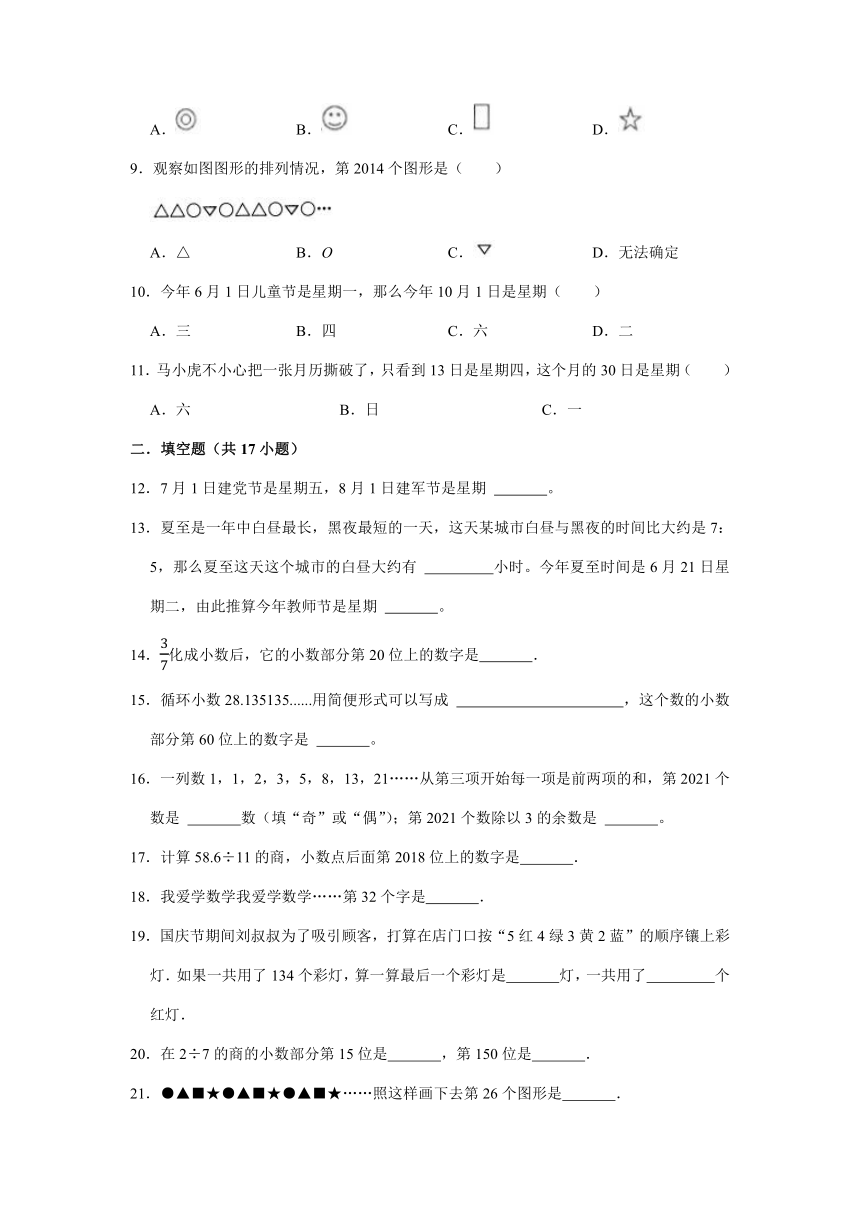 A． B． C． D．
9．观察如图图形的排列情况，第 2014 个图形是（　　）
△△○▽○△△○▽○…
A．△ B．O C．▽ D．无法确定
10．今年 6 月 1 日儿童节是星期一，那么今年 10 月 1 日是星期（　　）
A．三 B．四 C．六 D．二
11．马小虎不小心把一张月历撕破了，只看到 13 日是星期四，这个月的 30 日是星期（　　）
A．六 B．日 C．一
二．填空题（共 17 小题）
12．7 月 1 日建党节是星期五，8 月 1 日建军节是星期 ______。
13．夏至是一年中白昼最长，黑夜最短的一天，这天某城市白昼与黑夜的时间比大约是 7：
5，那么夏至这天这个城市的白昼大约有 ________小时。今年夏至时间是 6 月 21 日星
期二，由此推算今年教师节是星期 ______。
14．3/7化成小数后，它的小数部分第 20 位上的数字是______．
15．循环小数 28.135135......用简便形式可以写成 ____________________，这个数的小数
部分第 60 位上的数字是 ______。
16．一列数 1，1，2，3，5，8，13，21……从第三项开始每一项是前两项的和，第 2021 个
数是 ______数（填“奇”或“偶”）；第 2021 个数除以 3 的余数是 ______。
17．计算 58.6÷11 的商，小数点后面第 2018 位上的数字是______．
18．我爱学数学我爱学数学……第 32 个字是______．
19．国庆节期间刘叔叔为了吸引顾客，打算在店门口按“5 红 4 绿 3 黄 2 蓝”的顺序镶上彩
灯．如果一共用了 134 个彩灯，算一算最后一个彩灯是______灯，一共用了________个
红灯．
20．在 2÷7 的商的小数部分第 15 位是______，第 150 位是______．
21．●▲■★●▲■★●▲■★……照这样画下去第 26 个图形是______．